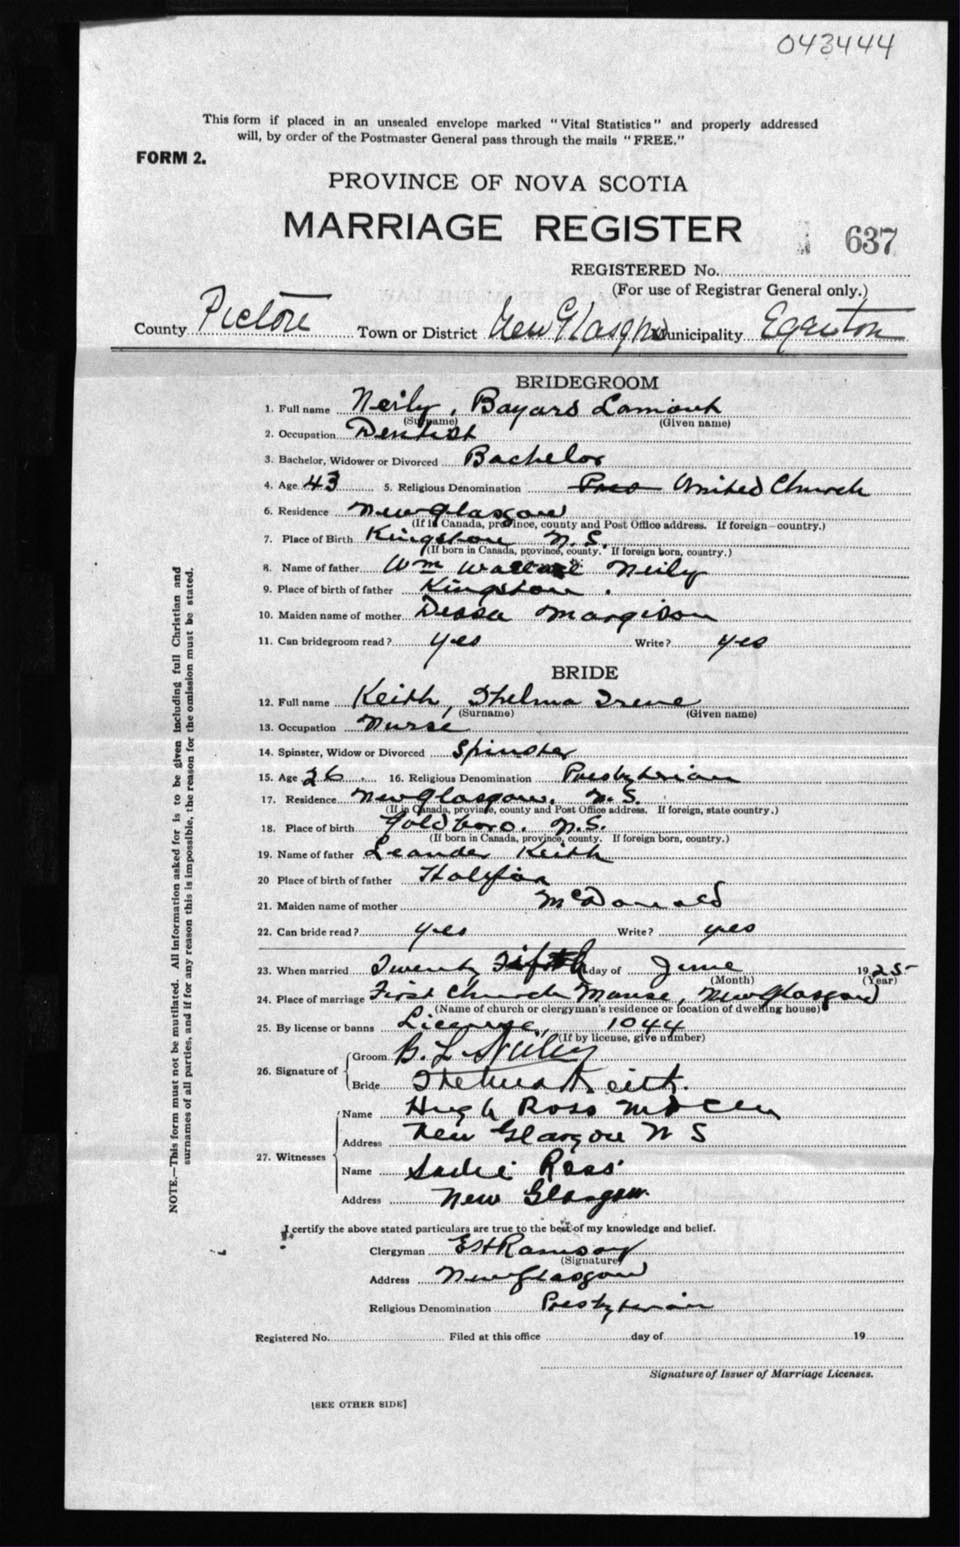 043444
This form if placed in an unsealed envelope marked "Vital Statistics" and properly addressed
will, by order of the Postmaster General pass through the mails "FREE."
FORM 2.
PROVINCE OF NOVA SCOTIA
MARRIAGE REGISTER
637
REGISTERED No.
(For use of Registrar General only.)
County Pictou Town or District New Glasgow Municipality Egerton
BRIDEGROOM
1. Full name Neily, Bayard Lamont
(Surname) (Given name)
2. Occupation Dentist
3. Bachelor, Widower or Divorced Bachelor
4. Age 43 5. Religious Denomination Pres United Church
6. Residence New Glasgow
(If in Canada, province, county and Post Office address. If foreign—country.)
7. Place of Birth Kingston N.S.
(If born in Canada, province, county. If foreign born, country.)
8. Name of father Wm Wallace Neily
9. Place of birth of father Kingston.
10. Maiden name of mother Dessa Margison
11. Can bridegroom read? yes Write? yes
BRIDE
12. Full name Keith, Thelma Irene
(Surname) (Given name)
13. Occupation Nurse
14. Spinster, Widow or Divorced Spinster
15. Age 26 16. Religious Denomination Presbyterian
17. Residence New Glasgow. N.S.
(If in Canada, province, county and Post Office address. If foreign, state country.)
18. Place of birth Goldboro. N.S.
(If born in Canada, province, county. If foreign born, country.)
19. Name of father Leander Keith
20 Place of birth of father Halifax
21. Maiden name of mother McDonald
22. Can bride read? yes Write? yes
23. When married Twenty Fifth day of June 1925
(Month) (Year)
24. Place of marriage First Church Manse, New Glasgow
(Name of church or clergyman's residence or location of dwelling house)
25. By license or banns License, 1044
(If by license, give number)
26. Signature of
Groom B. L. Neily
Bride Thelma Keith.
27. Witnesses
Name Hugh Ross
Address New Glasgow N S
Name Sadie Ross
Address New Glasgow.
I certify the above stated particulars are true to the best of my knowledge and belief.
Clergyman E H Ramsay
(Signature)
Address New Glasgow
Religious Denomination Presbyterian
Registered No. Filed at this office day of 19
Signature of Issuer of Marriage Licenses.
[SEE OTHER SIDE]
NOTE.—This form must not be mutilated. All information asked for is to be given including full Christian and
surnames of all parties, and if for any reason this is impossible, the reason for the omission must be stated.